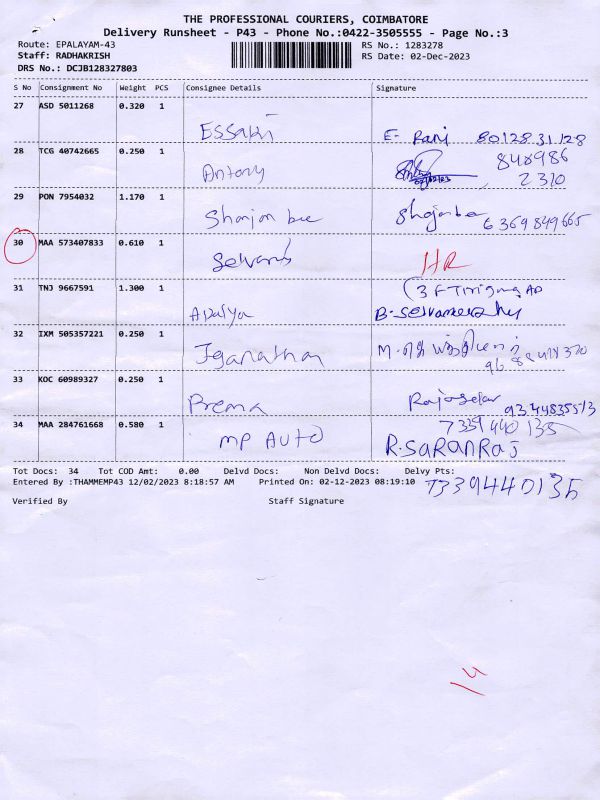 THE PROFESSIONAL COURIERS, COIMBATORE
Delivery Runsheet - P43 - Phone No.:0422-3505555 - Page No.:3
Route: EPALAYAM-43 RS No.: 1283278
Staff: RADHAKRISH RS Date: 02-Dec-2023
DRS No.: DCJB128327803
S No Consignment No Weight PCS Consignee Details Signature
27 ASD 5011268 0.320 1 Essakki E- Rani 80128 31 128
28 TCG 40742665 0.250 1 Antony 848986
2310
29 PON 7954032 1.170 1 6369849665
30 MAA 573407833 0.610 1 HR
31 TNJ 9667591 1.300 1
32 IXM 505357221 0.250 1 Jganathan
33 KOC 60989327 0.250 1 Prema
34 MAA 284761668 0.580 1 MP AUTO 7339440135
R.SARANRAJ
Tot Docs: 34 Tot COD Amt: 0.00 Delvd Docs: Non Delvd Docs: Delvy Pts:
Entered By :THAMMEMP43 12/02/2023 8:18:57 AM Printed On: 02-12-2023 08:19:10 7339440135
Verified By Staff Signature